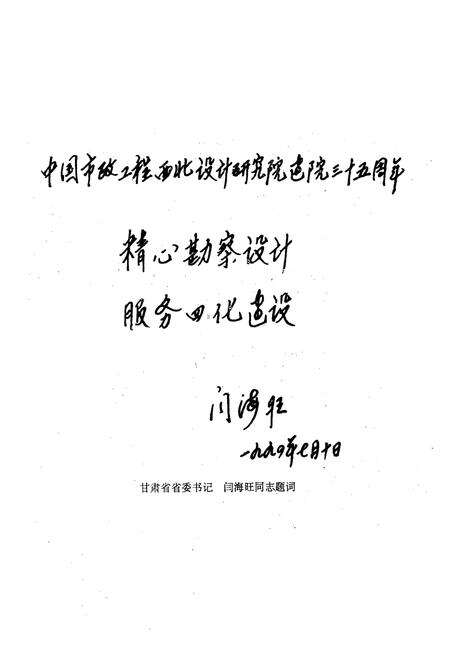 中国市政工程西北设计研究院建院三十五周年
精心勘察设计
服务四化建设
闫海旺
一九九四年七月十日
甘肃省省委书记　闫海旺同志题词